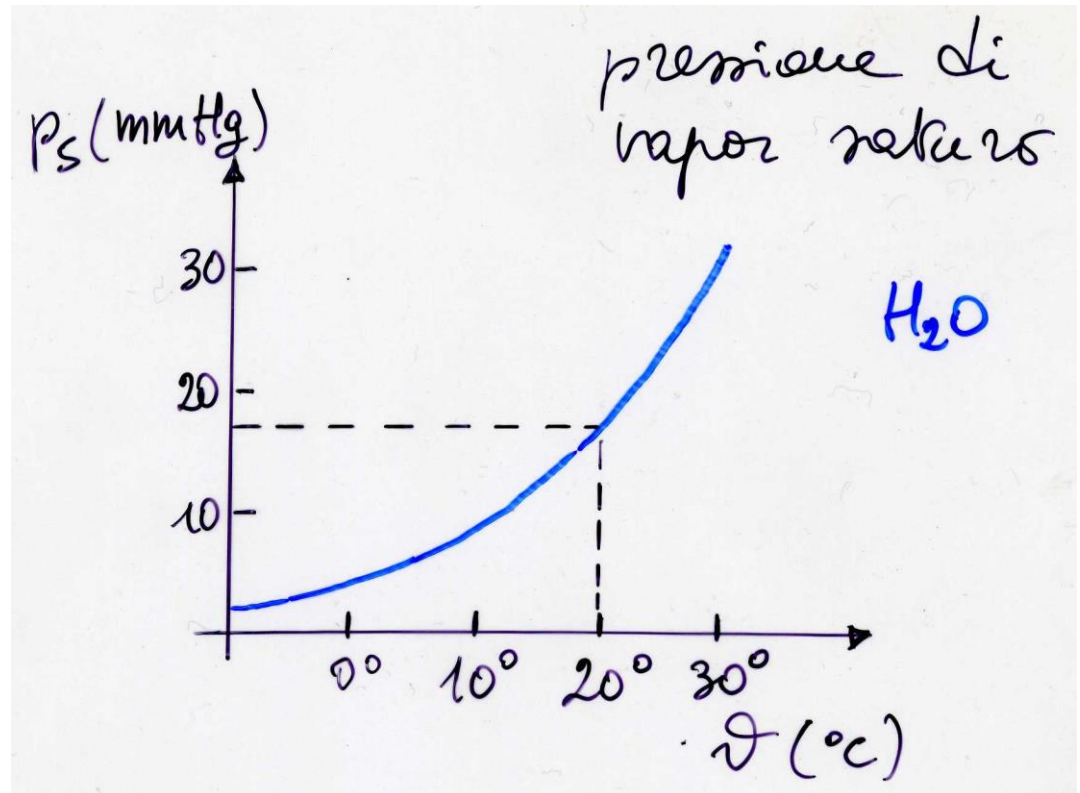 pressione di
vapor saturo
pₛ (mmHg)
30
20
10
H₂O
0° 10° 20° 30°
ϑ (°C)